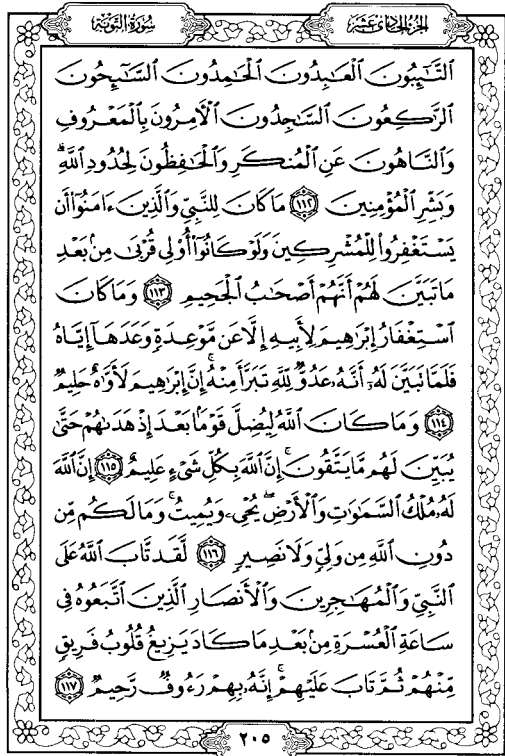 الجزء الحادي عشر
سورة التوبة
ٱلتَّـٰٓئِبُونَ ٱلْعَـٰبِدُونَ ٱلْحَـٰمِدُونَ ٱلسَّـٰٓئِحُونَ
ٱلرَّٰكِعُونَ ٱلسَّـٰجِدُونَ ٱلْـَٔامِرُونَ بِٱلْمَعْرُوفِ
وَٱلنَّاهُونَ عَنِ ٱلْمُنكَرِ وَٱلْحَـٰفِظُونَ لِحُدُودِ ٱللَّهِۗ
وَبَشِّرِ ٱلْمُؤْمِنِينَ ١١٢ مَا كَانَ لِلنَّبِىِّ وَٱلَّذِينَ ءَامَنُوٓا۟ أَن
يَسْتَغْفِرُوا۟ لِلْمُشْرِكِينَ وَلَوْ كَانُوٓا۟ أُو۟لِى قُرْبَىٰ مِنۢ بَعْدِ
مَا تَبَيَّنَ لَهُمْ أَنَّهُمْ أَصْحَـٰبُ ٱلْجَحِيمِ ١١٣ وَمَا كَانَ
ٱسْتِغْفَارُ إِبْرَٰهِيمَ لِأَبِيهِ إِلَّا عَن مَّوْعِدَةٍ وَعَدَهَآ إِيَّاهُ
فَلَمَّا تَبَيَّنَ لَهُۥٓ أَنَّهُۥ عَدُوٌّ لِّلَّهِ تَبَرَّأَ مِنْهُۚ إِنَّ إِبْرَٰهِيمَ لَأَوَّٰهٌ حَلِيمٌ
١١٤ وَمَا كَانَ ٱللَّهُ لِيُضِلَّ قَوْمًۢا بَعْدَ إِذْ هَدَىٰهُمْ حَتَّىٰ
يُبَيِّنَ لَهُم مَّا يَتَّقُونَۚ إِنَّ ٱللَّهَ بِكُلِّ شَىْءٍ عَلِيمٌ ١١٥ إِنَّ ٱللَّهَ
لَهُۥ مُلْكُ ٱلسَّمَـٰوَٰتِ وَٱلْأَرْضِۖ يُحْىِۦ وَيُمِيتُۚ وَمَا لَكُم مِّن
دُونِ ٱللَّهِ مِن وَلِىٍّ وَلَا نَصِيرٍ ١١٦ لَّقَد تَّابَ ٱللَّهُ عَلَى
ٱلنَّبِىِّ وَٱلْمُهَـٰجِرِينَ وَٱلْأَنصَارِ ٱلَّذِينَ ٱتَّبَعُوهُ فِى
سَاعَةِ ٱلْعُسْرَةِ مِنۢ بَعْدِ مَا كَادَ يَزِيغُ قُلُوبُ فَرِيقٍ
مِّنْهُمْ ثُمَّ تَابَ عَلَيْهِمْۚ إِنَّهُۥ بِهِمْ رَءُوفٌ رَّحِيمٌ ١١٧
٢٠٥